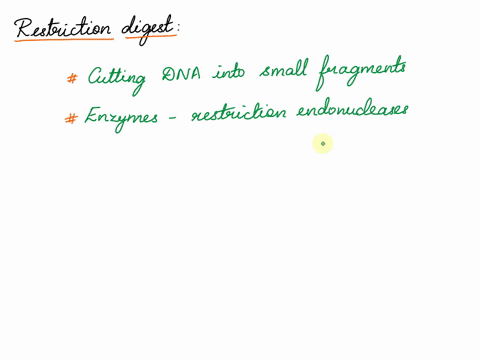 Restriction digest:
# Cutting DNA into small fragments
# Enzymes - restriction endonucleases